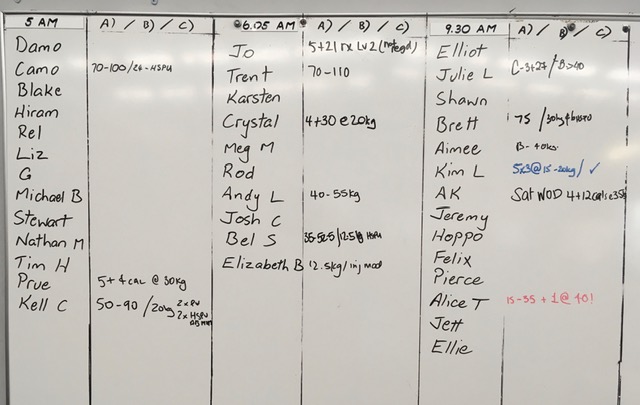 5 AM A) / B) / C)
Damo
Camo 70-100/26-HSPU
Blake
Hiram
Rel
Liz
G
Michael B
Stewart
Nathan M
Tim H
Prue 5+4 CAL @ 30kg
Kell C 50-90 /20kg 2x PU
2x HSPU
6.05 AM A) / B) / C)
Jo 5+21 rx Lv2
Trent 70-110
Karsten
Crystal 4+30 @ 20kg
Meg M
Rod
Andy L 40-55kg
Josh C
Bel S /12.5kg HSPU
Elizabeth B 12.5kg/inj mod
9.30 AM A) / B) / C)
Elliot
Julie L C-3+27
Shawn
Brett 75 /30kg
Aimee B-40kg
Kim L 5x3@15-20kg/ ✓
AK Sat WOD 4+12 cals @35k
Jeremy
Hoppo
Felix
Pierce
Alice T 15-35 + 1@ 40!
Jett
Ellie